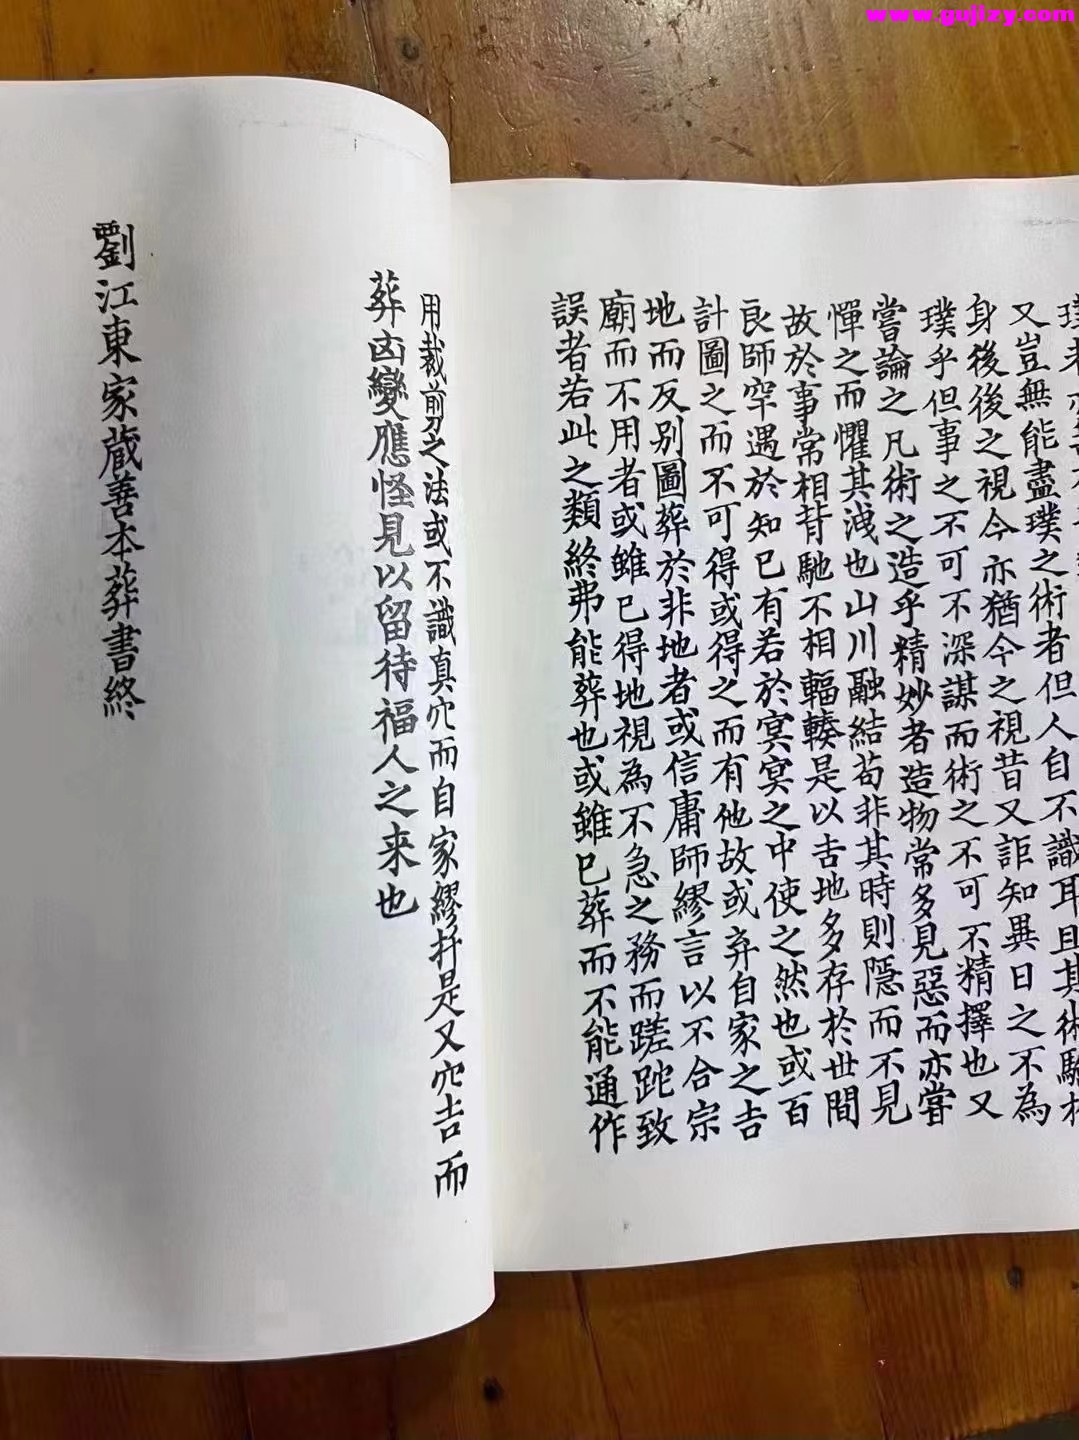 www.gujizy.com
又豈無能盡璞之術者但人自不識耳且其術
身後後之視今亦猶今之視昔又詎知異日之不為
璞乎但事之不可不深謀而術之不可不精擇也又
嘗論之凡術之造乎精妙者造物常多見惡而亦嘗
憚之而懼其洩也山川融結苟非其時則隱而不見
故於事常相背馳不相輻輳是以吉地多存於世間
良師罕遇於知已有若於冥冥之中使之然也或百
計圖之而不可得或得之而有他故或弃自家之吉
地而反別圖葬於非地者或信庸師繆言以不合宗
廟而不用者或雖已得地視為不急之務而蹉跎致
誤者若此之類終弗能葬也或雖已葬而不能通作
用裁剪之法或不識真穴而自家繆扦是又穴吉而
葬凶變應怪見以留待福人之来也
劉江東家蔵善本葬書終